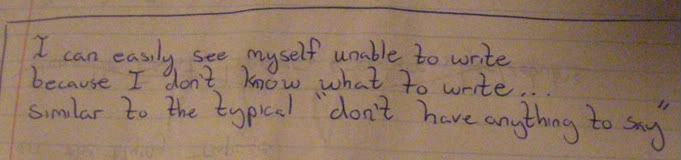 I can easily see myself unable to write
because I don't know what to write...
similar to the typical "don't have anything to say"